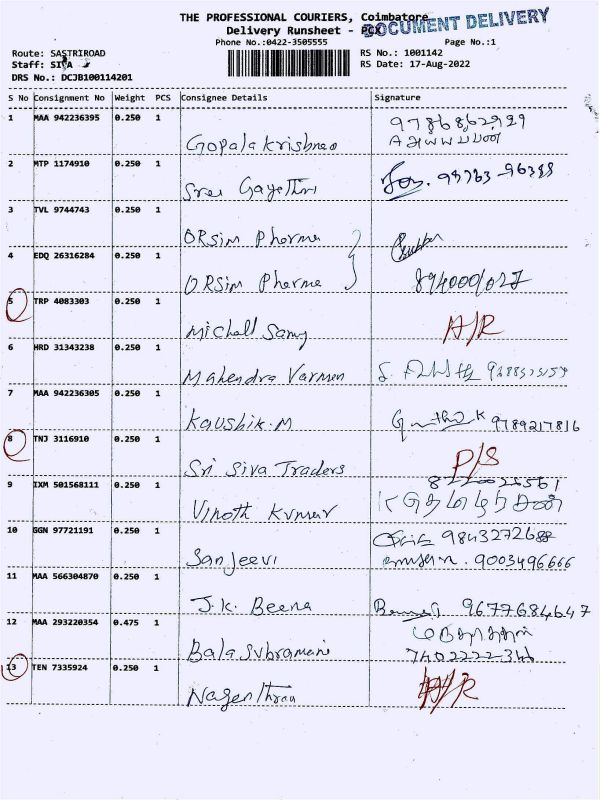 THE PROFESSIONAL COURIERS, Coimbatore
DOCUMENT DELIVERY
Delivery Runsheet - PCX
Phone No.:0422-3505555 Page No.:1
Route: SASTRIROAD RS No.: 1001142
Staff: SIVA RS Date: 17-Aug-2022
DRS No.: DCJB100114201
S No Consignment No Weight PCS Consignee Details Signature
1 MAA 942236395 0.250 1
Gopalakrishnan
2 MTP 1174910 0.250 1
Sree Gayethri
3 TVL 9744743 0.250 1
ORSim Pharma
4 EDQ 26316284 0.250 1
ORSim Pharma
5 TRP 4083303 0.250 1
Michall Samy A/R
6 HRD 31343238 0.250 1
Mahendra Varmen
7 MAA 942236305 0.250 1
Kaushik.M 9789217816
8 TNJ 3116910 0.250 1
Sri Siva Traders P/S
9 IXM 501568111 0.250 1
Vinoth Kumar
10 GGN 97721191 0.250 1
Sanjeevi 9003496666
11 MAA 566304870 0.250 1
J.K. Beena 9677684647
12 MAA 293220354 0.475 1
Bala Subramani
13 TEN 7335924 0.250 1
Nagenthran A/R